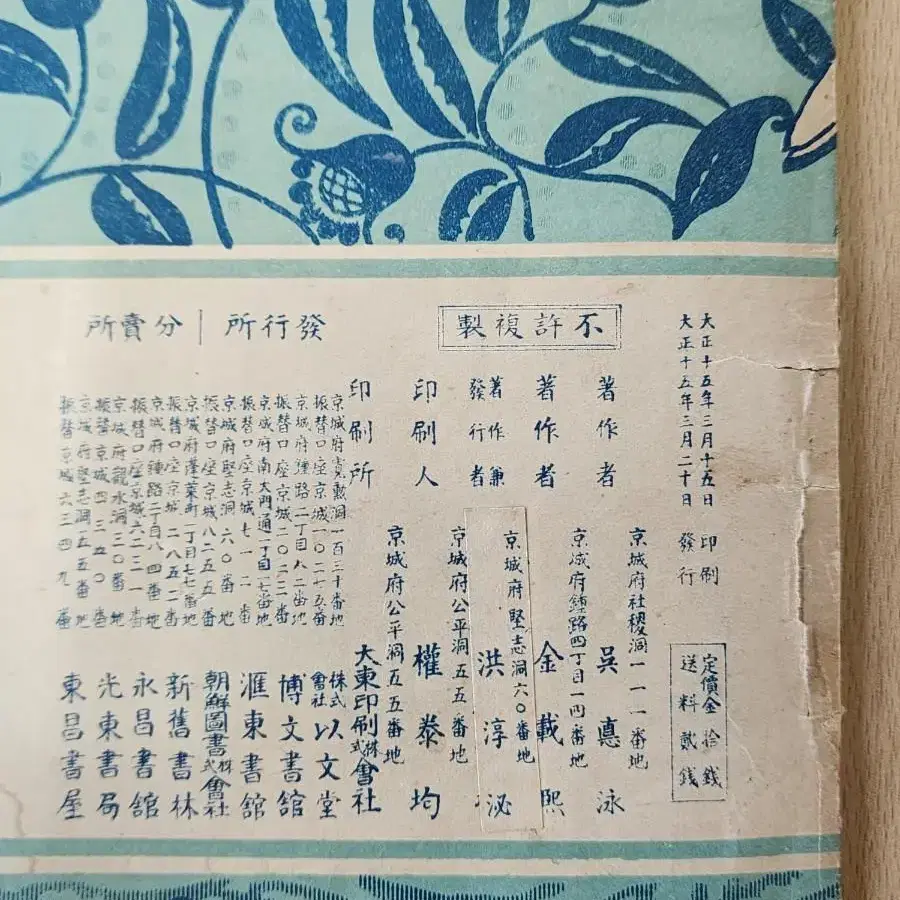 大正十五年三月十五日 印刷
大正十五年三月二十日 發行
定價金 拾錢
送料 貳錢
不許複製
著作者 京城府社稷洞一一一番地 吳悳泳
著作者 京城府鍾路四丁目一四番地 金載熙
著作兼發行者 京城府堅志洞六〇番地 洪淳泌
印刷人 京城府公平洞五五番地 權泰均
印刷所 京城府公平洞五五番地 大東印刷株式會社
發行所｜分賣所
京城府寬勳洞一百三十番地
振替口座京城一〇二七五番
株式會社以文堂
京城府鍾路二丁目八二番地
振替口座京城二〇二三番
博文書館
京城府南大門通一丁目一七番地
振替口座京城七一二番
滙東書館
京城府堅志洞六〇番地
振替口座京城八二五五番
朝鮮圖書株式會社
京城府蓬萊町一丁目七七番地
振替口座京城二八五二番
新舊書林
京城府鍾路二丁目八四番地
振替口座京城六二三一番
永昌書館
京城府觀水洞三〇番地
振替京城四三五〇番
光東書局
京城府堅志洞五五番地
振替京城六三四九番
東昌書屋